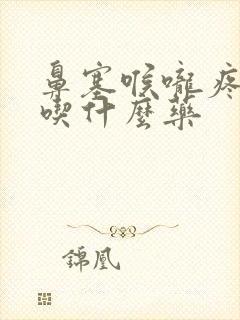 鼻塞喉嚨疼
喫什麼藥
錦凰